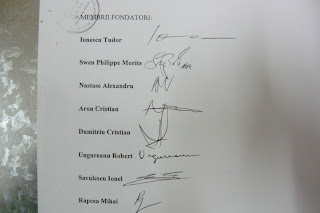 MEMBRII FONDATORI:
Ionescu Tudor
Swen Philippe Moritz
Nastase Alexandru
Aron Cristian
Dumitriu Cristian
Ungareanu Robert Ungureanu
Savulescu Ionel
Rapcea Mihai